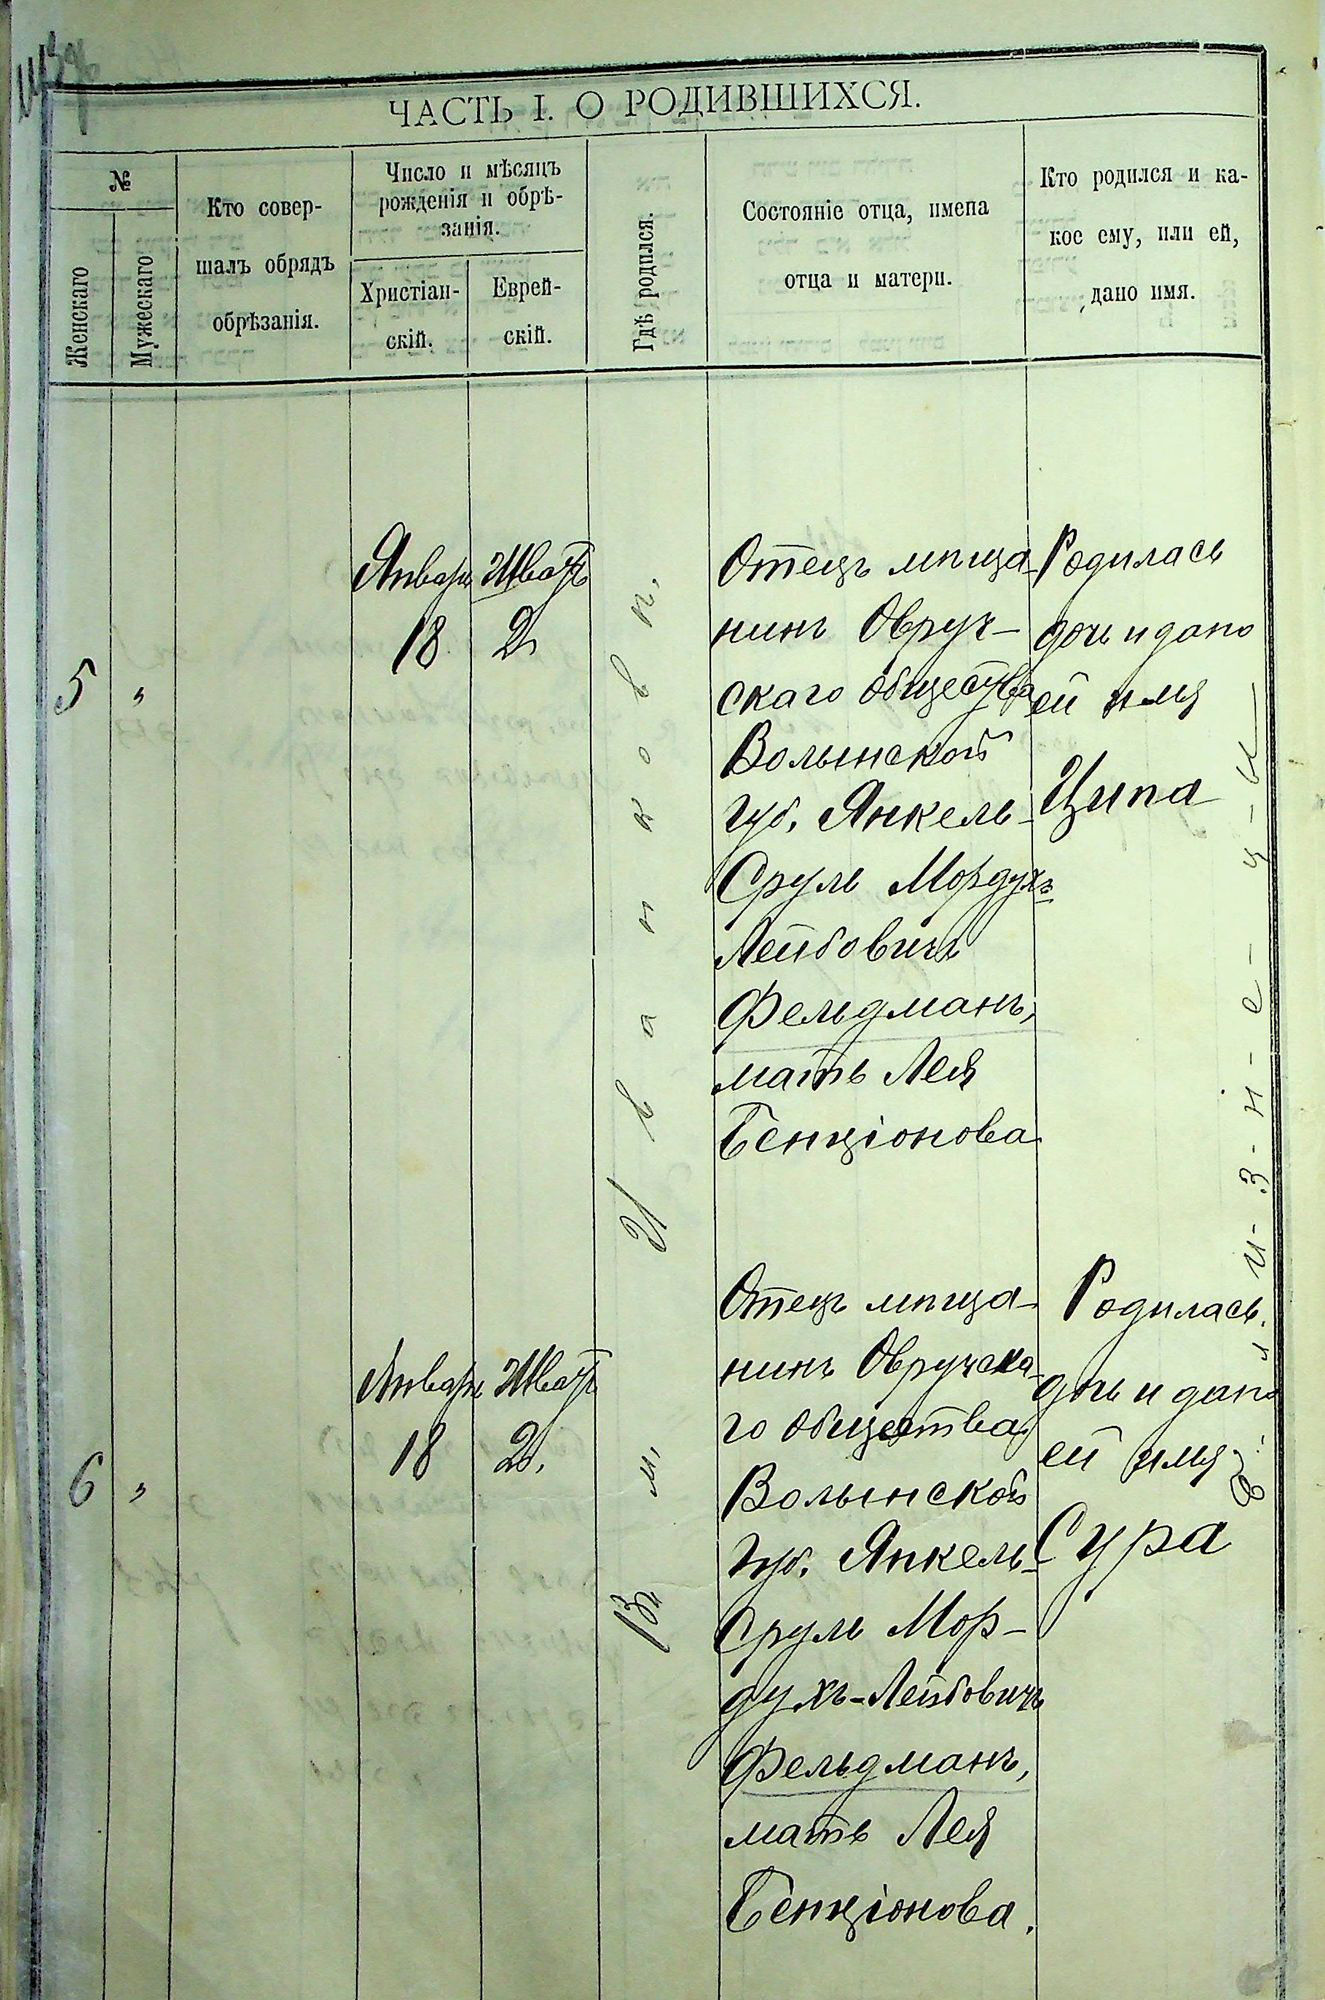 ЧАСТЬ I. О РОДИВШИХСЯ.
№
Женскаго
Мужескаго
Кто совер-
шалъ обрядъ
обрѣзанія.
Число и мѣсяцъ
рожденія и обрѣ-
занія.
Христіан-
скій.
Еврей-
скій.
Гдѣ родился.
Состояніе отца, имена
отца и матери.
Кто родился и ка-
кое ему, или ей,
дано имя.
5
"
Январь
18
Шватъ
2
Отецъ мѣща-
нинъ Овруч-
скаго общества
Волынской
губ. Янкель-
Сруль Мордухъ-
Лейбовичъ
Фельдманъ,
мать Лея
Бенціонова
Родилась
дочь и дано
ей имя
Ципа
6
"
Январь
18
Шватъ
2.
Отецъ мѣща-
нинъ Овручска-
го общества
Волынской
губ. Янкель-
Сруль Мор-
духъ-Лейбовичъ
Фельдманъ,
мать Лея
Бенціонова.
Родилась
дочь и дано
ей имя
Сура
м. Иванковъ